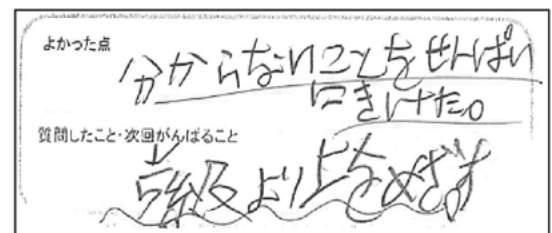 よかった点
分からないことをせんぱい
にきけた。
質問したこと・次回がんばること
級より上をめざす